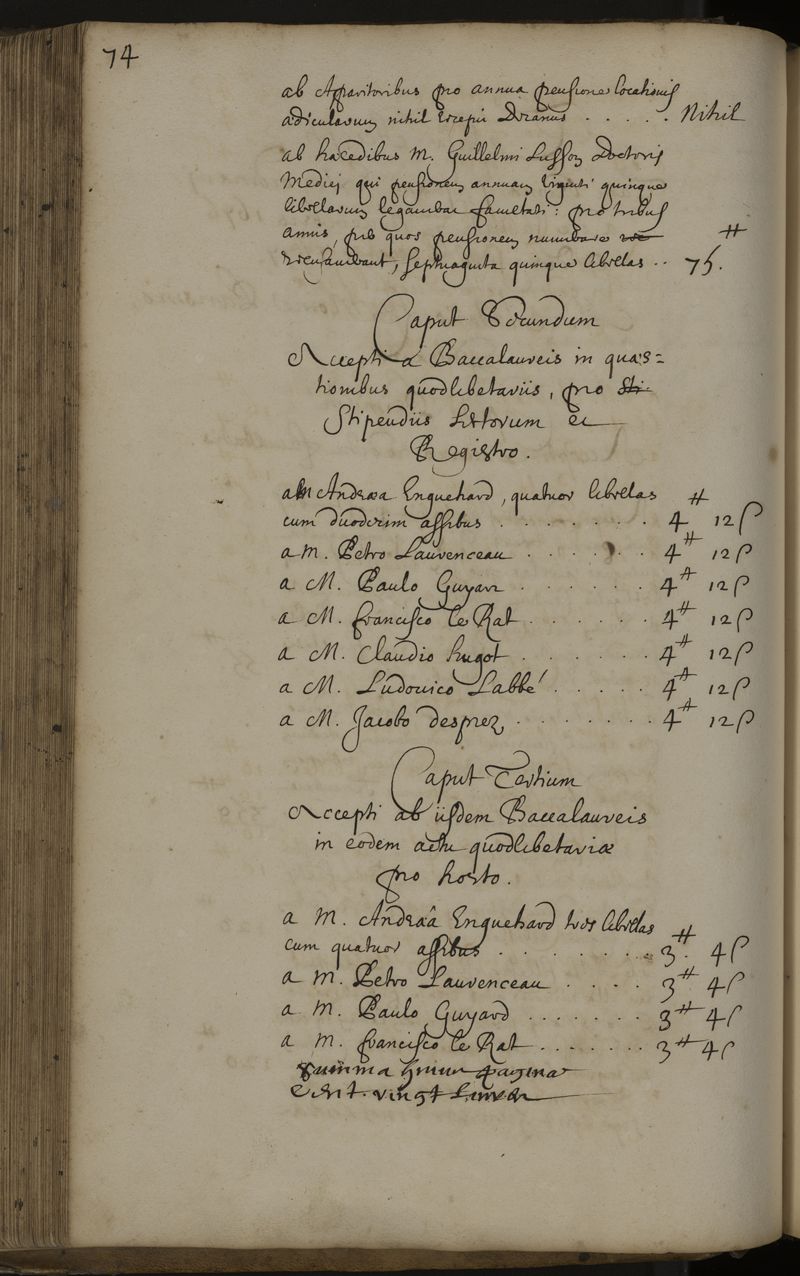 74
ab Apparitoribus pro annua pensione locationis
ædicularum nihil recepit Decanus . . . . . Nihil
ab hæredibus M. Guillelmi Lusson Doctoris
Medici qui pensionem annuam viginti quinque
librarum legaverat facultati: pro tribus
annis, per quos pensionem numerare
recusaverant, septuaginta quinque libellas .. 75. ₶
Caput Secundum
Accepti a Baccalaureis in quæs=
tionibus quodlibetariis, pro sti
Stipendiis Lictorum et
Registro.
a M Andræa Enguehard, quatuor libellas
cum duodecim assibus . . . . . . . 4 ₶ 12 ſ
a M. Petro Lauvenceau . . . . . . 4 ₶ 12 ſ
a M. Paulo Guyart . . . . . . 4 ₶ 12 ſ
a M. Francisco le Rat . . . . . . 4 ₶ 12 ſ
a M. Claudio hugot . . . . . . . 4 ₶ 12 ſ
a M. Ludovico Labbé . . . . . 4 ₶ 12 ſ
a M. Jacobo desprez . . . . . . . 4 ₶ 12 ſ
Caput Tertium
Accepti ab iisdem Baccalaureis
in eodem actu quodlibetariæ
pro horto.
a M. Andræâ Enguehard tres libellas
cum quatuor assibus . . . . . . . . 3 ₶. 4 ſ
a M. Petro Lauvenceau . . . . 3 ₶ 4 ſ
a M. Paulo Guyard . . . . . . . 3 ₶ 4 ſ
a M. Francisco le Rat . . . . . . . 3 ₶ 4 ſ
Summa huius paginæ
Cent vingt